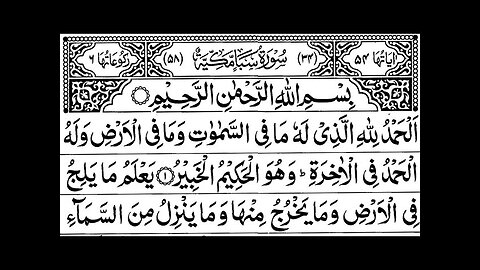 اٰیَاتُهَا ۵۴ (۳۴) سُوْرَةُ سَبَاٍ مَكِّیَّةٌ (۵۸) رُكُوْعَاتُهَا ۶
بِسْمِ اللّٰهِ الرَّحْمٰنِ الرَّحِیْمِ ○
اَلْحَمْدُ لِلّٰهِ الَّذِیْ لَهٗ مَا فِی السَّمٰوٰتِ وَمَا فِی الْاَرْضِ وَلَهُ
الْحَمْدُ فِی الْاٰخِرَةِ ؕ وَهُوَ الْحَكِیْمُ الْخَبِیْرُ ۝۱ یَعْلَمُ مَا یَلِجُ
فِی الْاَرْضِ وَمَا یَخْرُجُ مِنْهَا وَمَا یَنْزِلُ مِنَ السَّمَآءِ